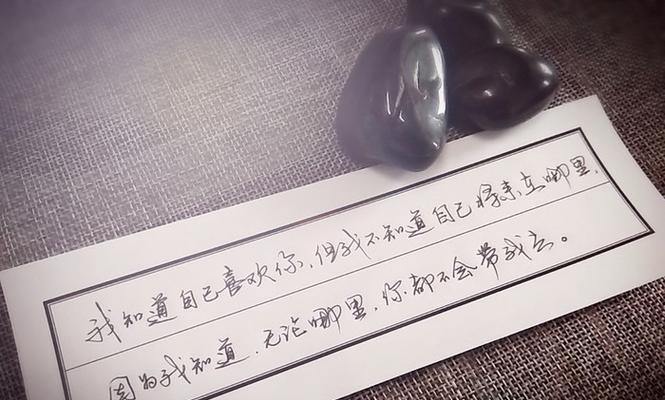 我知道自己喜欢你,但我不知道自己将来在哪里,
因为我知道,无论哪里,你都不会带我去。